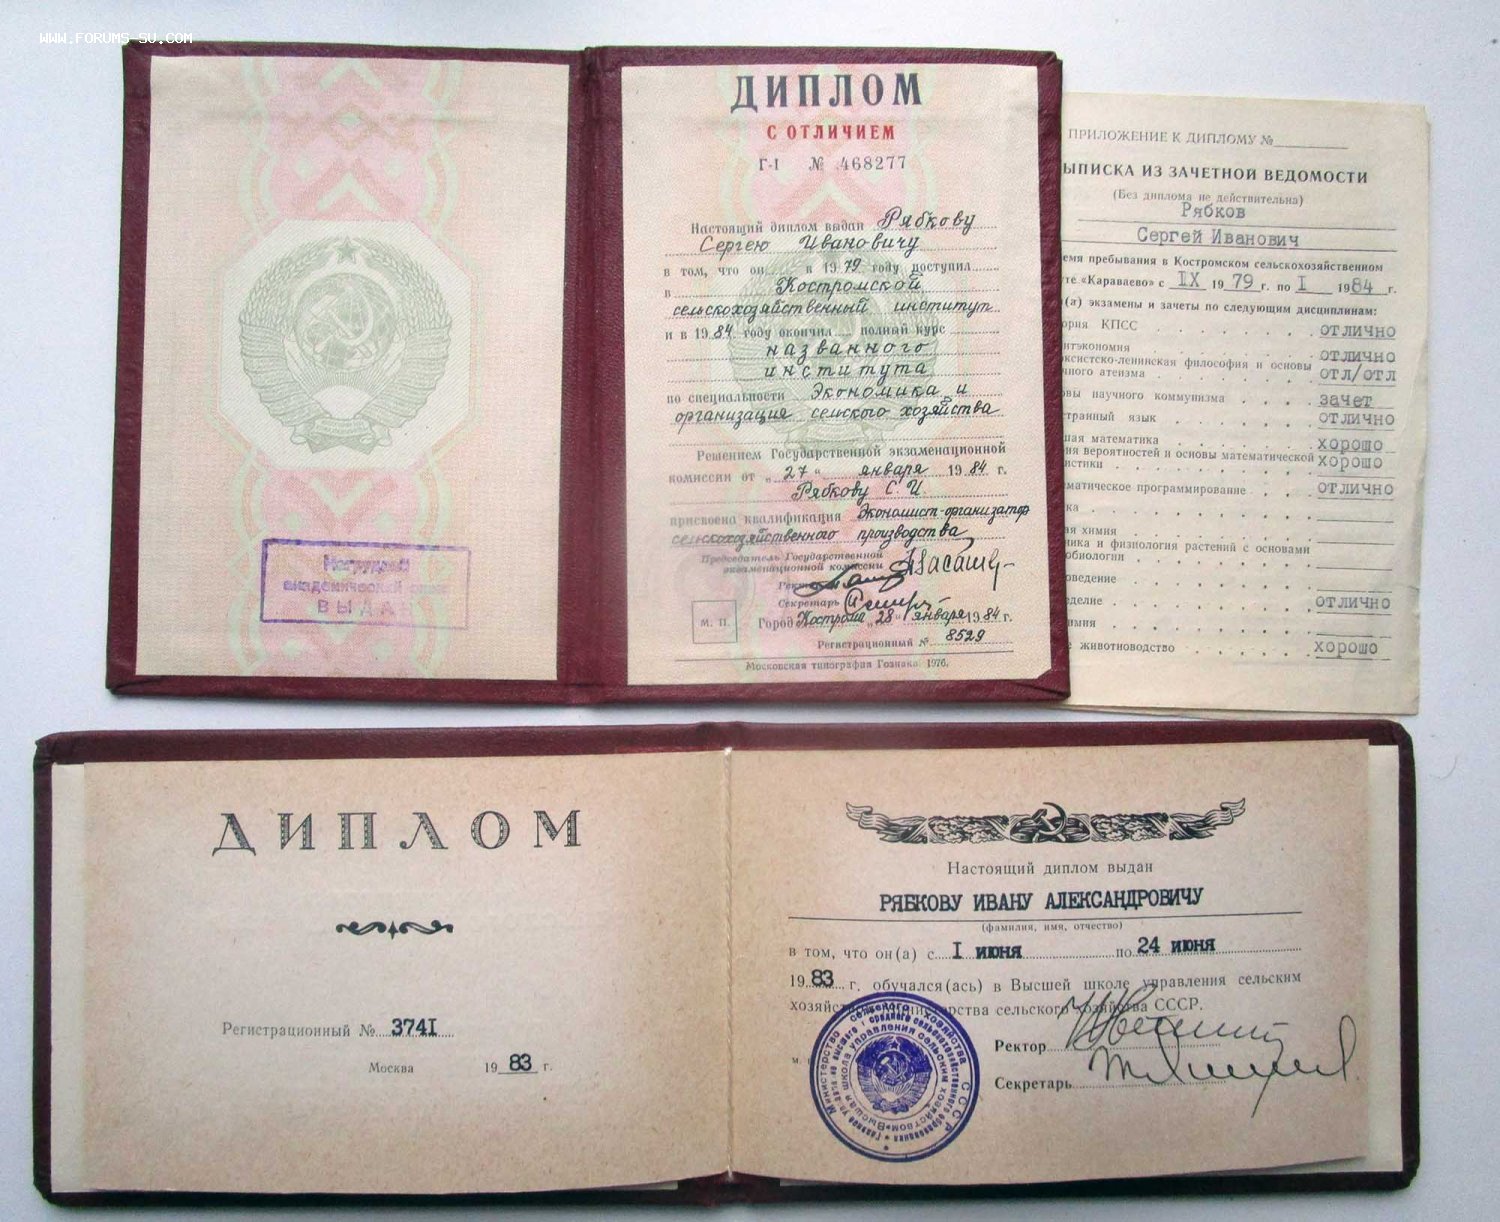 WWW.FORUMS-SU.COM
ВЫДАН
ДИПЛОМ
С ОТЛИЧИЕМ
Г-I № 468277
Настоящий диплом выдан Рябкову
Сергею Ивановичу
в том, что он в 1979 году поступил
в Костромской
сельскохозяйственный институт
и в 1984 году окончил полный курс
названного
института
по специальности Экономика и
организация сельского хозяйства
Решением Государственной экзаменационной
комиссии от „27“ января 1984 г.
Рябкову С. И.
присвоена квалификация Экономист-организатор
сельскохозяйственного производства
Председатель Государственной
экзаменационной комиссии
Секретарь
М. П.
Город Кострома „28“ января 1984 г.
Регистрационный № 8529
Московская типография Гознака. 1976.
ПРИЛОЖЕНИЕ К ДИПЛОМУ №
ЫПИСКА ИЗ ЗАЧЕТНОЙ ВЕДОМОСТИ
(Без диплома не действительна)
Рябков
Сергей Иванович
емя пребывания в Костромском сельскохозяйственном
уте «Караваево» с IX 1979 г. по I 1984 г.
(а) экзамены и зачеты по следующим дисциплинам:
ория КПСС отлично
итэкономия отлично
ксистско-ленинская философия и основы
чного атеизма отл/отл
овы научного коммунизма зачет
странный язык отлично
шая математика хорошо
ия вероятностей и основы математической
истики хорошо
матическое программирование отлично
ка
ая химия
ника и физиология растений с основами
обиологии
оведение
еделие отлично
имия
е животноводство хорошо
ДИПЛОМ
Регистрационный № 374I
Москва 1983 г.
Настоящий диплом выдан
РЯБКОВУ ИВАНУ АЛЕКСАНДРОВИЧУ
(фамилия, имя, отчество)
в том, что он(а) с I июня по 24 июня
1983 г. обучался(ась) в Высшей школе управления сельским
хозяйст министерства сельского хозяйства СССР.
Ректор
Секретарь
Министерство сельского хозяйства СССР
Высшая школа управления сельским хозяйством